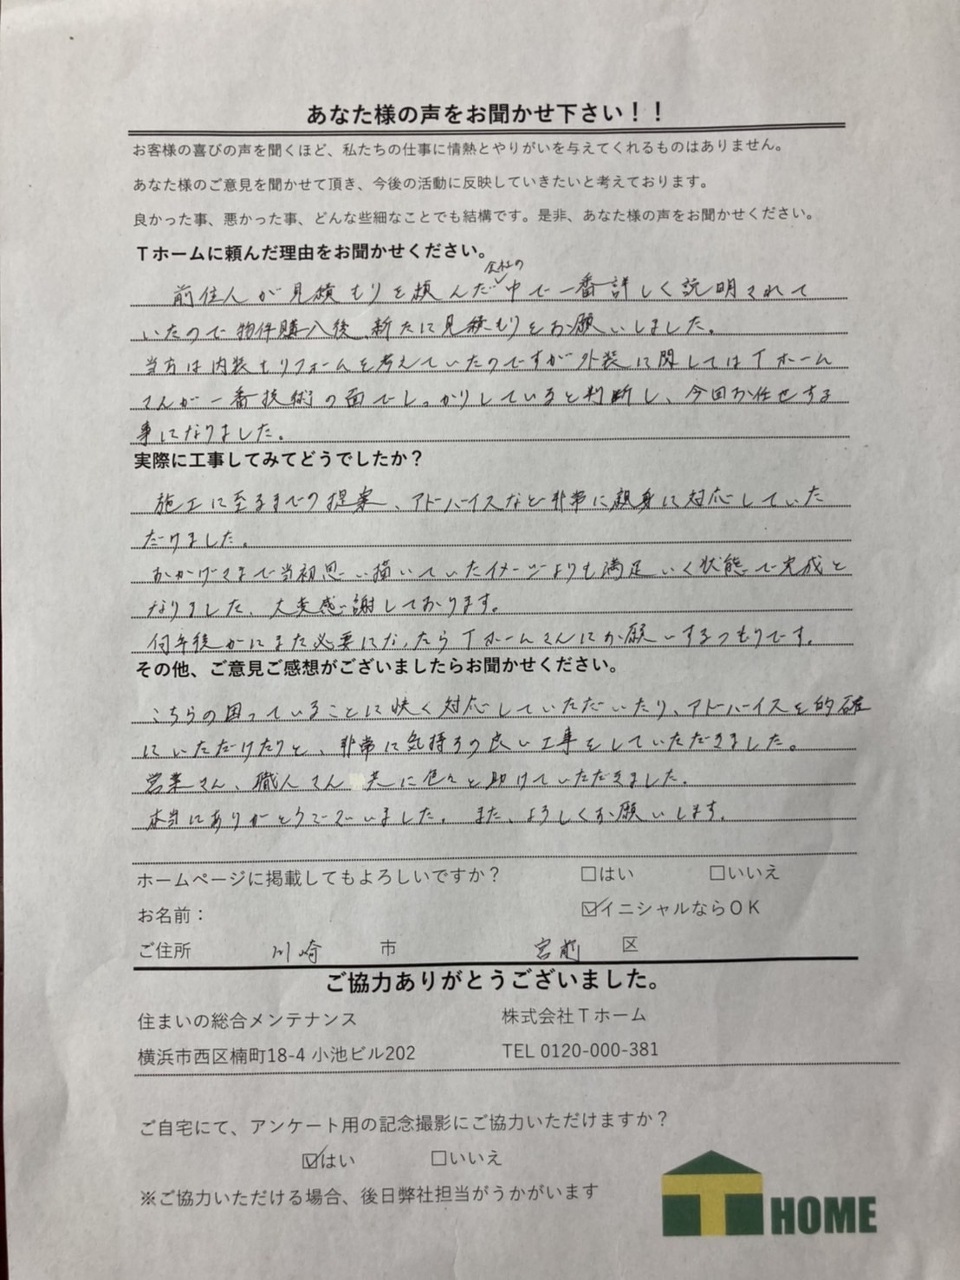 あなた様の声をお聞かせ下さい！！
お客様の喜びの声を聞くほど、私たちの仕事に情熱とやりがいを与えてくれるものはありません。
あなた様のご意見を聞かせて頂き、今後の活動に反映していきたいと考えております。
良かった事、悪かった事、どんな些細なことでも結構です。是非、あなた様の声をお聞かせください。
Ｔホームに頼んだ理由をお聞かせください。
会社の
前住人が見積もりを頼んだ中で一番詳しく説明されて
いたので物件購入後、新たに見積もりをお願いしました。
当方は内装もリフォームを考えていたのですが外装に関してはTホーム
さんが一番技術の面でしっかりしていると判断し、今回お任せする
事になりました。
実際に工事してみてどうでしたか？
施工に至るまでの提案、アドバイスなど非常に親身に対応していた
だけました。
おかげさまで当初思い描いていたイメージよりも満足いく状態で完成と
なりました、大変感謝しております。
何年後かにまた必要になったらTホームさんにお願いするつもりです。
その他、ご意見ご感想がございましたらお聞かせください。
こちらの困っていることに快く対応していただいたり、アドバイスを的確
にいただけたりと、非常に気持ちの良い工事をしていただきました。
営業さん、職人さん 共に色々と助けていただきました。
本当にありがとうございました。また、よろしくお願いします。
ホームページに掲載してもよろしいですか？ □はい □いいえ
お名前： ☑イニシャルならＯＫ
ご住所 川崎 市 宮前 区
ご協力ありがとうございました。
住まいの総合メンテナンス 株式会社Ｔホーム
横浜市西区楠町18-4 小池ビル202 TEL 0120-000-381
ご自宅にて、アンケート用の記念撮影にご協力いただけますか？
☑はい □いいえ
※ご協力いただける場合、後日弊社担当がうかがいます
T HOME